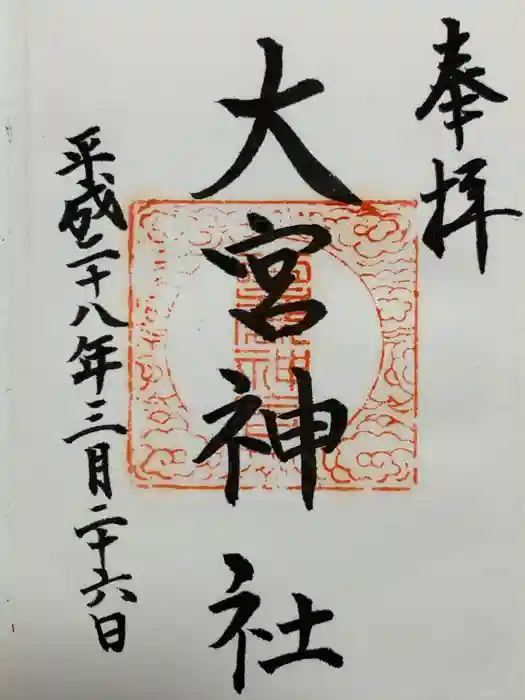 奉拝
大宮神社
平成二十八年三月二十六日